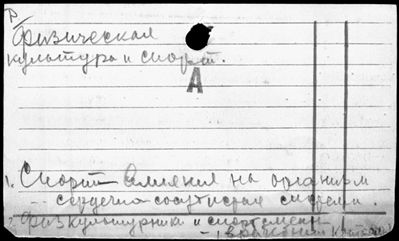 Физическая
культура и спорт.
А
1. Спорт влияния на организм
-- сердечно-сосудистая система.
2. Физкультурники и спортсмены